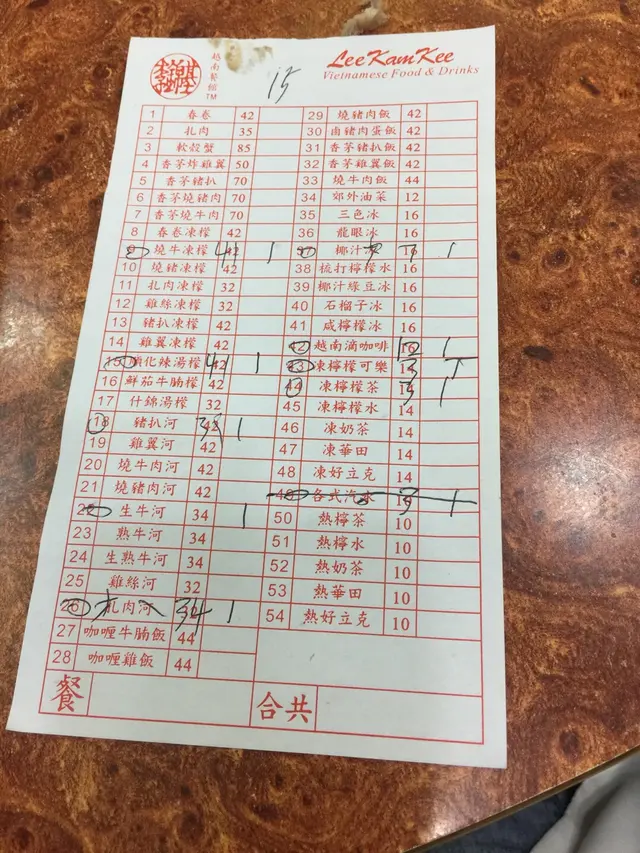 越南餐館
TM
LeeKamKee
Vietnamese Food & Drinks
15
1 春卷 42
2 扎肉 35
3 軟殼蟹 85
4 香茅炸雞翼 50
5 香茅豬扒 70
6 香茅燒豬肉 70
7 香茅燒牛肉 70
8 春卷凍檬 42
9 燒牛凍檬 42 1
10 燒豬凍檬 42
11 扎肉凍檬 32
12 雞絲凍檬 32
13 豬扒凍檬 42
14 雞翼凍檬 42
15 順化辣湯檬 42 1
16 鮮茄牛腩檬 42
17 什錦湯檬 32
18 豬扒河 42 38 1
19 雞翼河 42
20 燒牛肉河 42
21 燒豬肉河 42
22 生牛河 34 1
23 熟牛河 34
24 生熟牛河 34
25 雞絲河 32
26 扎肉河 34 1
27 咖喱牛腩飯 44
28 咖喱雞飯 44
29 燒豬肉飯 42
30 鹵豬肉蛋飯 42
31 香茅豬扒飯 42
32 香茅雞翼飯 42
33 燒牛肉飯 44
34 郊外油菜 12
35 三色冰 16
36 龍眼冰 16
37 椰汁 1
38 梳打檸檬水 16
39 椰汁綠豆冰 16
40 石榴子冰 16
41 咸檸檬水 16
42 越南滴咖啡 16 1
43 凍檸檬可樂 1
44 凍檸檬茶 1
45 凍檸檬水 14
46 凍奶茶 14
47 凍華田 14
48 凍好立克 14
49 各式汽水 1
50 熱檸茶 10
51 熱檸水 10
52 熱奶茶 10
53 熱華田 10
54 熱好立克 10
餐 合共